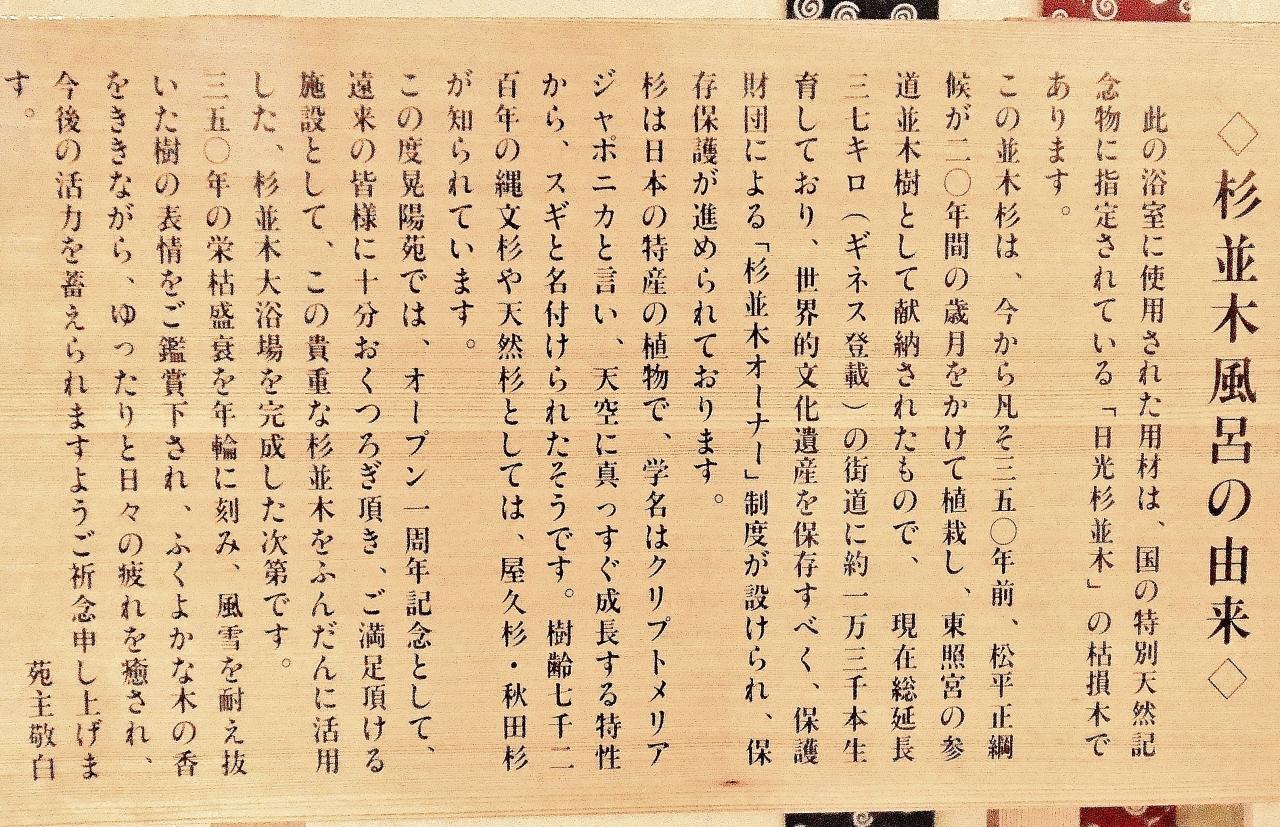 ◇杉並木風呂の由来◇
此の浴室に使用された用材は、国の特別天然記
念物に指定されている「日光杉並木」の枯損木で
あります。
この並木杉は、今から凡そ三五〇年前、松平正綱
候が二〇年間の歳月をかけて植栽し、東照宮の参
道並木樹として献納されたもので、現在総延長
三七キロ（ギネス登載）の街道に約一万三千本生
育しており、世界的文化遺産を保存すべく、保護
財団による「杉並木オーナー」制度が設けられ、保
存保護が進められております。
杉は日本の特産の植物で、学名はクリプトメリア
ジャポニカと言い、天空に真っすぐ成長する特性
から、スギと名付けられたそうです。樹齢七千二
百年の縄文杉や天然杉としては、屋久杉・秋田杉
が知られています。
この度晃陽苑では、オープン一周年記念として、
遠来の皆様に十分おくつろぎ頂き、ご満足頂ける
施設として、この貴重な杉並木をふんだんに活用
した、杉並木大浴場を完成した次第です。
三五〇年の栄枯盛衰を年輪に刻み、風雪を耐え抜
いた樹の表情をご鑑賞下され、ふくよかな木の香
をききながら、ゆったりと日々の疲れを癒され、
今後の活力を蓄えられますようご祈念申し上げま
す。
苑主敬白